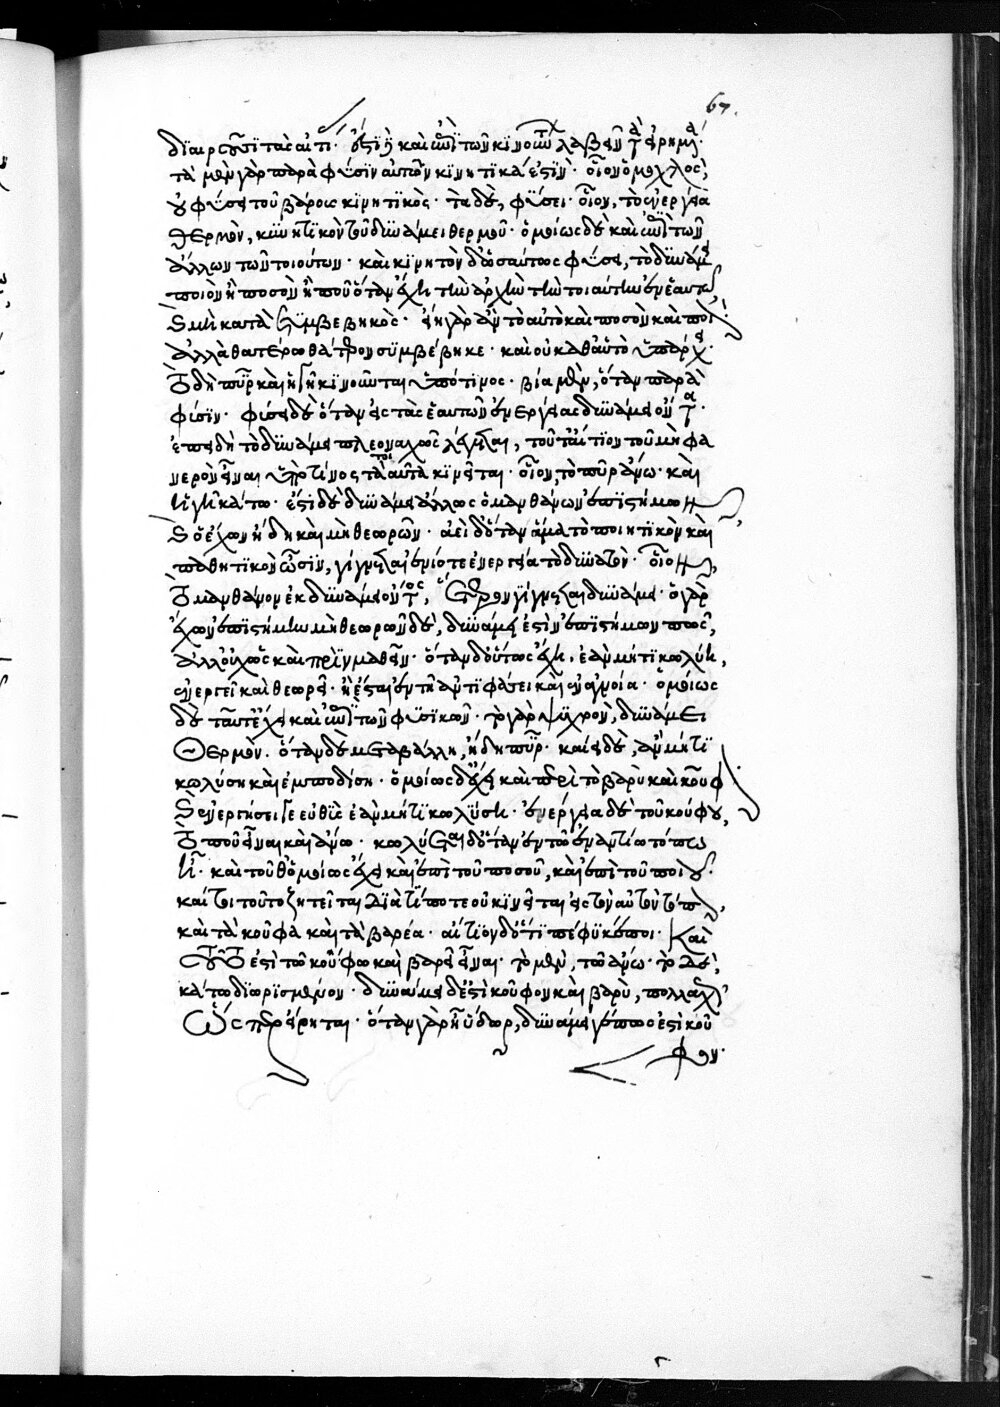 67.
διαιροῦσι τὰς αἰτί. ἔστι δὲ καὶ ἐπὶ τῶν κινούντων λαβεῖν τὰ εἰρημένα.
τὰ μὲν γὰρ παρὰ φύσιν αὐτῶν κινητικά ἐστιν. οἷον ὁ μοχλὸς,
οὐ φύσει τοῦ βάρους κινητικός. τὰ δὲ, φύσει. οἷον, τὸ ἐνεργείᾳ
θερμὸν, κινητικὸν τοῦ δυνάμει θερμοῦ. ὁμοίως δὲ καὶ ἐπὶ τῶν
ἄλλων τῶν τοιούτων. καὶ κινητὸν δ' ὡσαύτως φύσει, τὸ δυνάμει
ποιὸν ἢ ποσὸν ἢ ποῦ ὅταν ἔχῃ τὴν ἀρχὴν τὴν τοιαύτην ἐν ἑαυτῷ
καὶ μὴ κατὰ συμβεβηκός. εἴη γὰρ ἂν τὸ αὐτὸ καὶ ποσὸν καὶ ποιόν.
ἀλλὰ θατέρῳ θάτερον συμβέβηκε. καὶ οὐ καθ' αὑτὸ ὑπάρχει.
τὸ δὴ πῦρ καὶ ἡ γῆ κινοῦνται ὑπό τινος. βίᾳ μὲν, ὅταν παρὰ
φύσιν. φύσει δὲ ὅταν εἰς τὰς ἑαυτῶν ἐνεργείας δυνάμει ὄντα.
ἐπεὶ δὴ τὸ δυνάμει πλεοναχῶς λέγεται, τοῦτ' αἴτιον τοῦ μὴ φα
νερὸν εἶναι ὑπὸ τίνος τὰ τοιαῦτα κινεῖται. οἷον, τὸ πῦρ ἄνω. καὶ
ἡ γῆ κάτω. ἔστι δὲ δυνάμει ἄλλως ὁ μανθάνων ἐπιστήμων
καὶ ὁ ἔχων ἤδη καὶ μὴ θεωρῶν. ἀεὶ δ' ὅταν ἅμα τὸ ποιητικὸν καὶ
παθητικὸν ὦσιν, γίγνεται ἐνίοτε ἐνεργείᾳ τὸ δυνατόν. οἷον
τὸ μανθάνον ἐκ δυνάμει ὄντος, ἕτερον γίγνεται δυνάμει. ὁ γὰρ
ἔχων ἐπιστήμην μὴ θεωρῶν δὲ, δυνάμει ἐστὶν ἐπιστήμων πως,
ἀλλ' οὐχ ὡς καὶ πρὶν μαθεῖν. ὅταν δ' οὕτως ἔχῃ, ἐὰν μή τι κωλύῃ,
ἐνεργεῖ καὶ θεωρεῖ. ἢ ἔσται ἐν τῇ ἀντιφάσει καὶ ἐν ἀγνοίᾳ. ὁμοίως
δὲ ταῦτ' ἔχει καὶ ἐπὶ τῶν φυσικῶν. τὸ γὰρ ψυχρὸν, δυνάμει
θερμὸν. ὅταν δὲ μεταβάλλῃ, ἤδη πῦρ. καίει δὲ, ἂν μή τι
κωλύσῃ καὶ ἐμποδίσῃ. ὁμοίως δ' ἔχει καὶ περὶ τὸ βαρὺ καὶ κοῦφον
καὶ ἐνεργήσει γε εὐθὺς ἐὰν μή τι κωλύσῃ. ἐνέργεια δὲ τοῦ κούφου,
τὸ ποῦ εἶναι καὶ ἄνω. κωλύεται δ' ὅταν ἐν τῷ ἐναντίῳ τόπῳ
ᾖ. καὶ τοῦθ' ὁμοίως ἔχει καὶ ἐπὶ τοῦ ποσοῦ, καὶ ἐπὶ τοῦ ποιοῦ.
καί τοι τοῦτο ζητεῖται διὰ τί ποτε οὐ κινεῖται εἰς τὸν αὐτὸν τόπον,
καὶ τὰ κοῦφα καὶ τὰ βαρέα. αἴτιον δ' ὅτι πέφυκέ ποι. καὶ
τοῦτό ἐστι τῷ κούφῳ καὶ βαρεῖ εἶναι. τὸ μὲν, τῷ ἄνω. τὸ δὲ,
κάτω διωρισμένον. δυνάμει δ' ἐστὶ κοῦφον καὶ βαρὺ, πολλαχῶς
ὥσπερ εἴρηται. ὅταν γὰρ ᾖ ὕδωρ, δυνάμει γέ πως ἐστὶ κοῦ
φον.